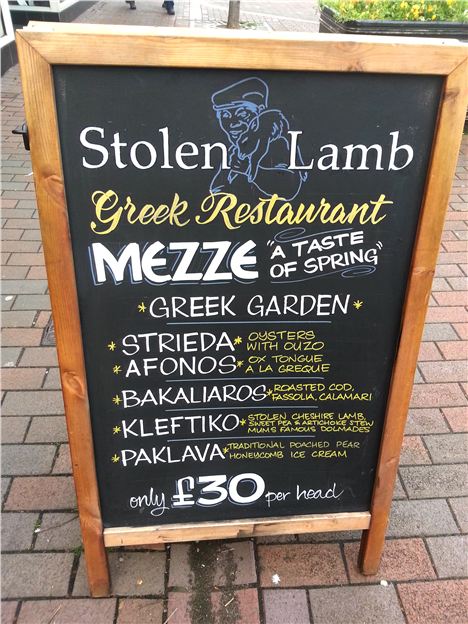 Stolen Lamb
Greek Restaurant
MEZZE "A TASTE
OF SPRING"
*GREEK GARDEN*
*STRIEDA* OYSTERS
WITH OUZO
*AFONOS* OX TONGUE
A LA GREQUE
*BAKALIAROS* ROASTED COD,
FASSOLIA, CALAMARI
*KLEFTIKO* STOLEN CHESHIRE LAMB,
SWEET PEA & ARTICHOKE STEW
MUMS FAMOUS DOLMADES
*PAKLAVA* TRADITIONAL POACHED PEAR
HONEYCOMB ICE CREAM
only £30 per head